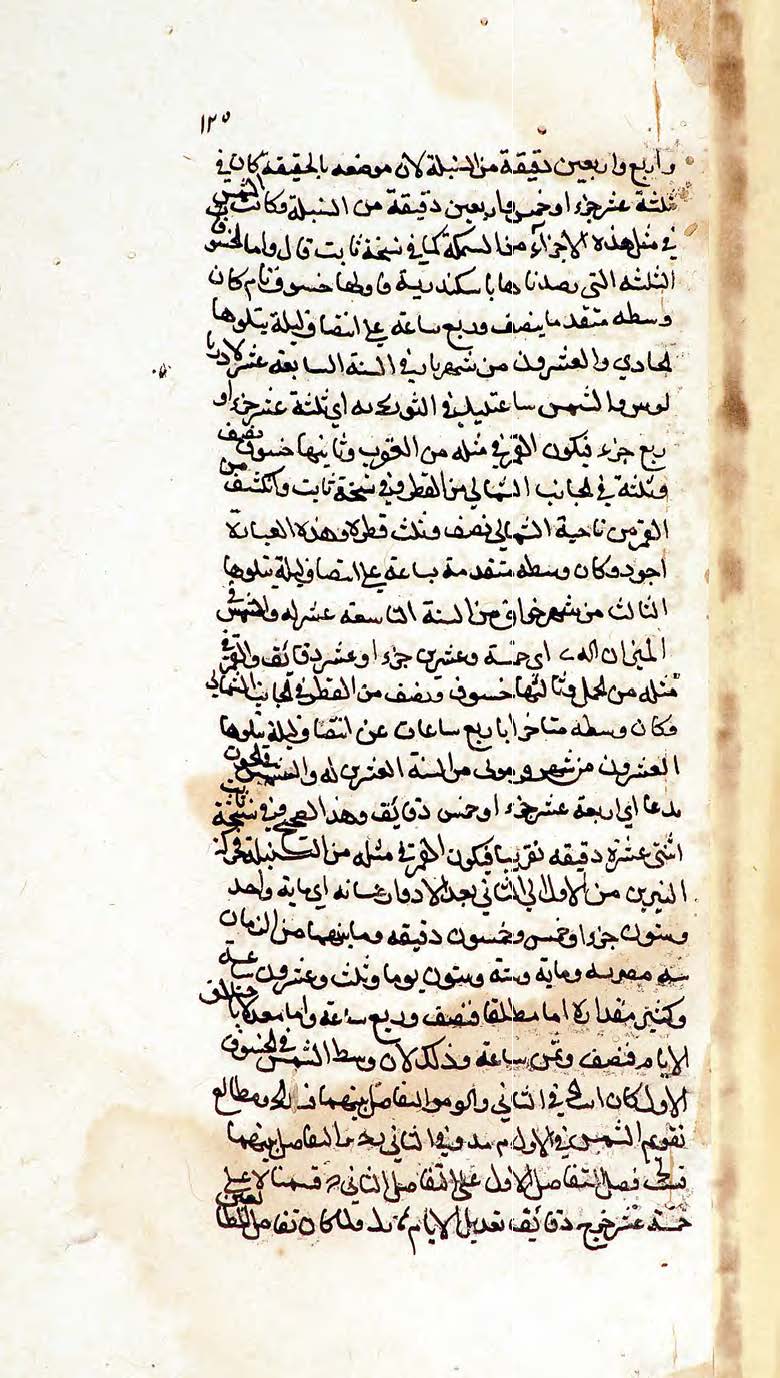 ١٢٥
واربع واربعين دقيقة من السنبلة لان موضعه بالحقيقة كان في
ثلثة عشر جزءا وخمس واربعين دقيقة من السنبلة وكانت الشمس
في مثل هذه الاجزآء من السمكة كما في نسخة ثابت قال واما الخسوفات
الثلثه التي رصدناها باسكندرية فاولها خسوف تام كان
وسطه متقدما بنصف وربع ساعة على انتصاف ليلة يتلوها
الحادي والعشرون من شهر باب في السنة السابعة عشر لادريا
نوس والشمس ساعتئذ في الثور يه اي ثلثة عشر جزءا و
ربع جزء فيكون القمر في مثله من العقرب وثانيها خسوف نصف
وثلثة في الجانب الشمالي من القطر وفي نسخة ثابت وانكشف من
القمر من ناحية الشمالي نصف وثلث قطره وهذه العبارة
اجود وكان وسطه متقدمة بساعة على انتصاف ليلة يتلوها
الثالث من شهر خواق من السنة التاسعة عشر له والشمس في
الميزان اي خمسة وعشرين جزءا وعشر دقائق والقمر في
مثله من الحمل وثالثها خسوف ونصف من القطر في الجانب الشمالي
فكان وسطه متاخرا باربع ساعات عن انتصاف ليلة يتلوها
العشرون من شهر مولى من السنة العشرين له والشمس
اي اربعة عشر جزءا وخمس دقائق وهذا الصحيح وفي نسخة ثابت
اثنتى عشرة دقيقه تقريبا فيكون القمر في مثله من السنبلة فحركة
النيرين من الاول الى الثاني بعد الادوار اي مايه واحد
وستون جزءا وخمس وخمسون دقيقه وما بينهما من الزمان
سنه مصريه ومايه وستة وستون يوما وثلث وعشرون ساعة
وكثير مقداره اما مطلقا فنصف وربع ساعة واما معدلا باختلاف
الايام فنصف وثمن ساعة وذلك لان وسط الشمس في الخسوف
الاول كان في الثاني والتفاضل بينهما ومطالع
تقويم الشمس في الاول وفي الثاني والتفاضل بينهما
فضل التفاضل الاول على التفاضل الثاني قسمناه على
خمسة عشر خرج دقائق تعديل الايام ولما كان تفاضل